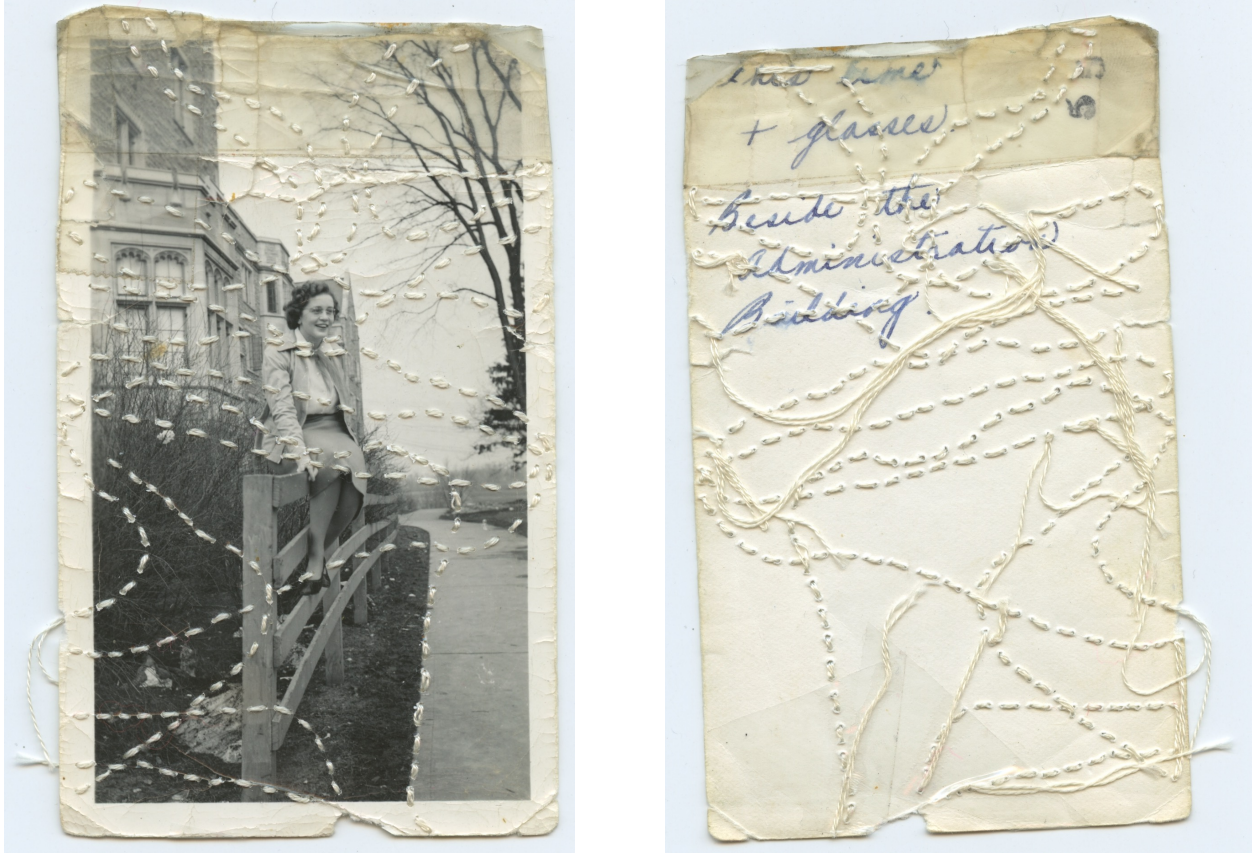 this time
+ glasses.
Beside the
administration
Building.